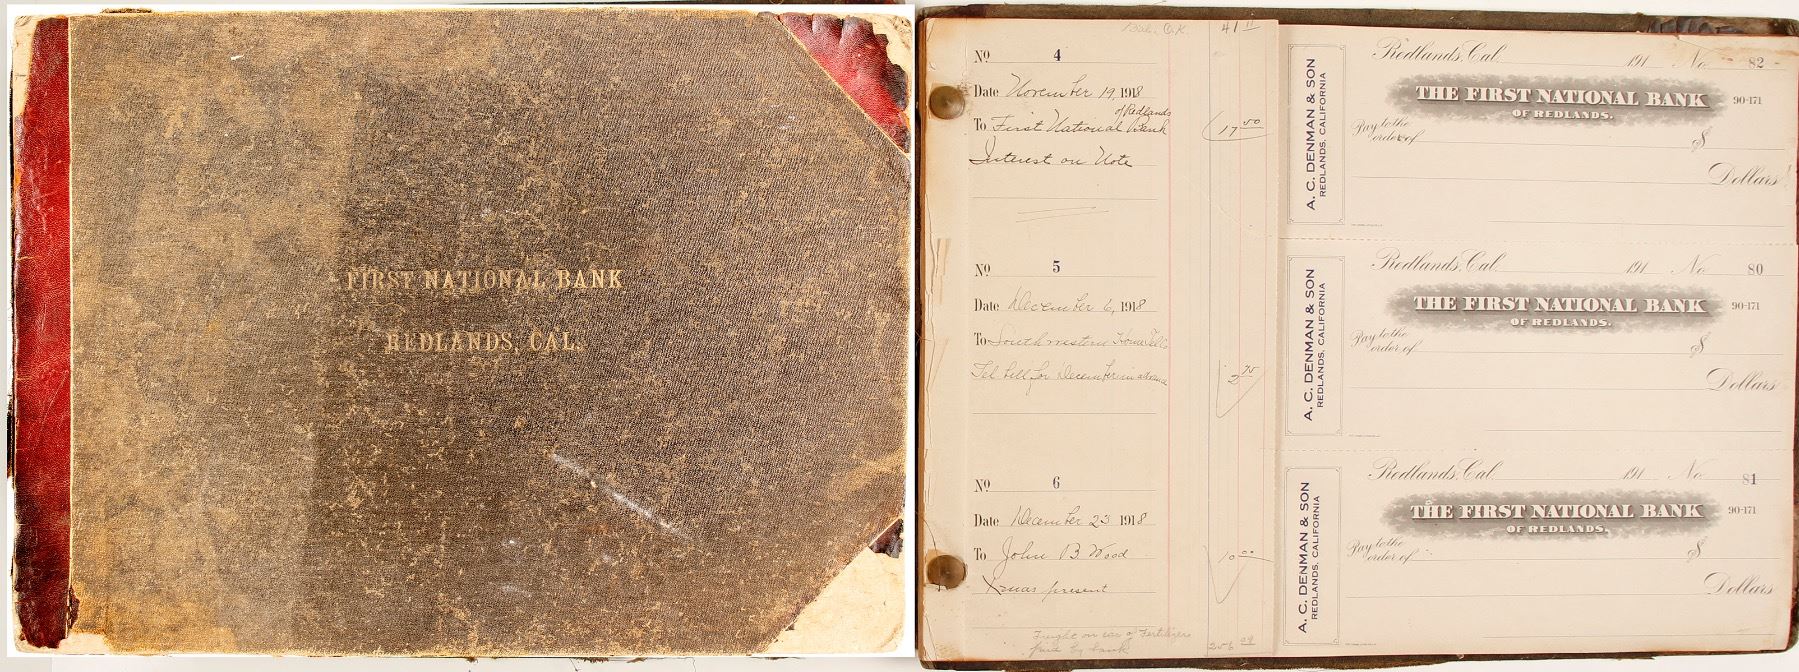 FIRST NATIONAL BANK
REDLANDS, CAL.
Bal. O.K. 41 11
No 4
Date November 19, 1918
of Redlands
To First National Bank 17 50
Interest on Note
No 5
Date December 6, 1918
To Southwestern Home Tel
Tel bill for December in advance 2 75
No 6
Date December 23 1918
To John B Wood 10 00
Xmas present
Freight on car of Fertilizer
paid by bank 256
A. C. DENMAN & SON
REDLANDS, CALIFORNIA
Redlands, Cal. 191 No. 82
THE FIRST NATIONAL BANK 90-171
OF REDLANDS.
Pay to the
order of $
Dollars
A. C. DENMAN & SON
REDLANDS, CALIFORNIA
Redlands, Cal. 191 No. 80
THE FIRST NATIONAL BANK 90-171
OF REDLANDS.
Pay to the
order of $
Dollars
A. C. DENMAN & SON
REDLANDS, CALIFORNIA
Redlands, Cal. 191 No. 81
THE FIRST NATIONAL BANK 90-171
OF REDLANDS.
Pay to the
order of $
Dollars